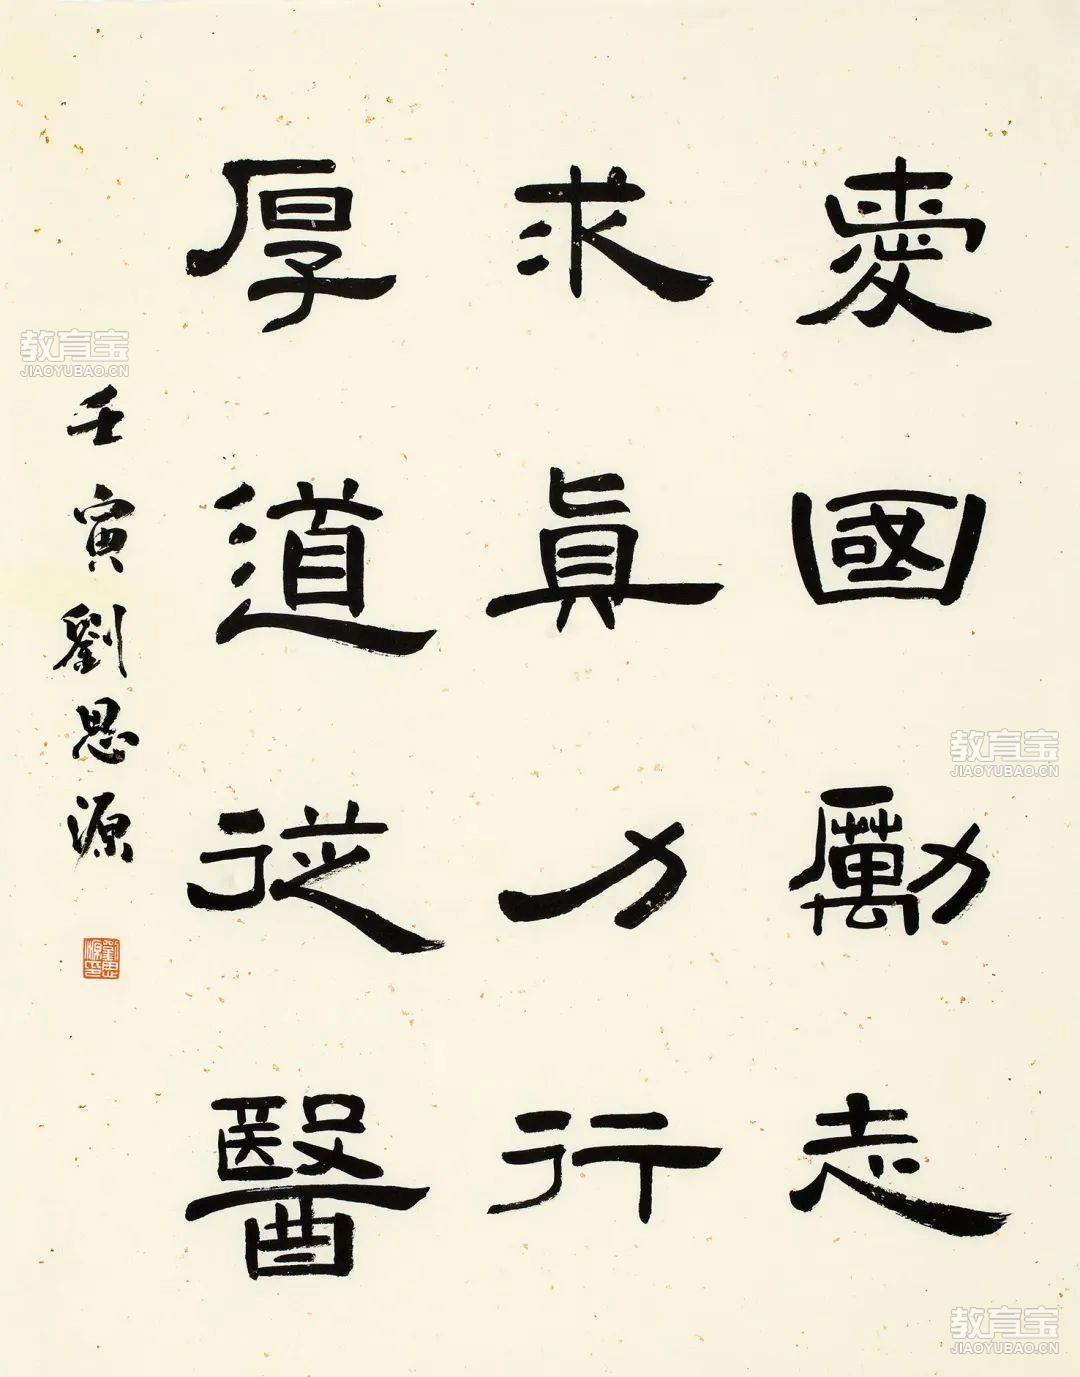 愛國勵志
求真力行
厚道從醫
壬寅劉思源
劉思源印
教育宝
JIAOYUBAO.CN
教育宝
JIAOYUBAO.CN
教育宝
JIAOYUBAO.CN